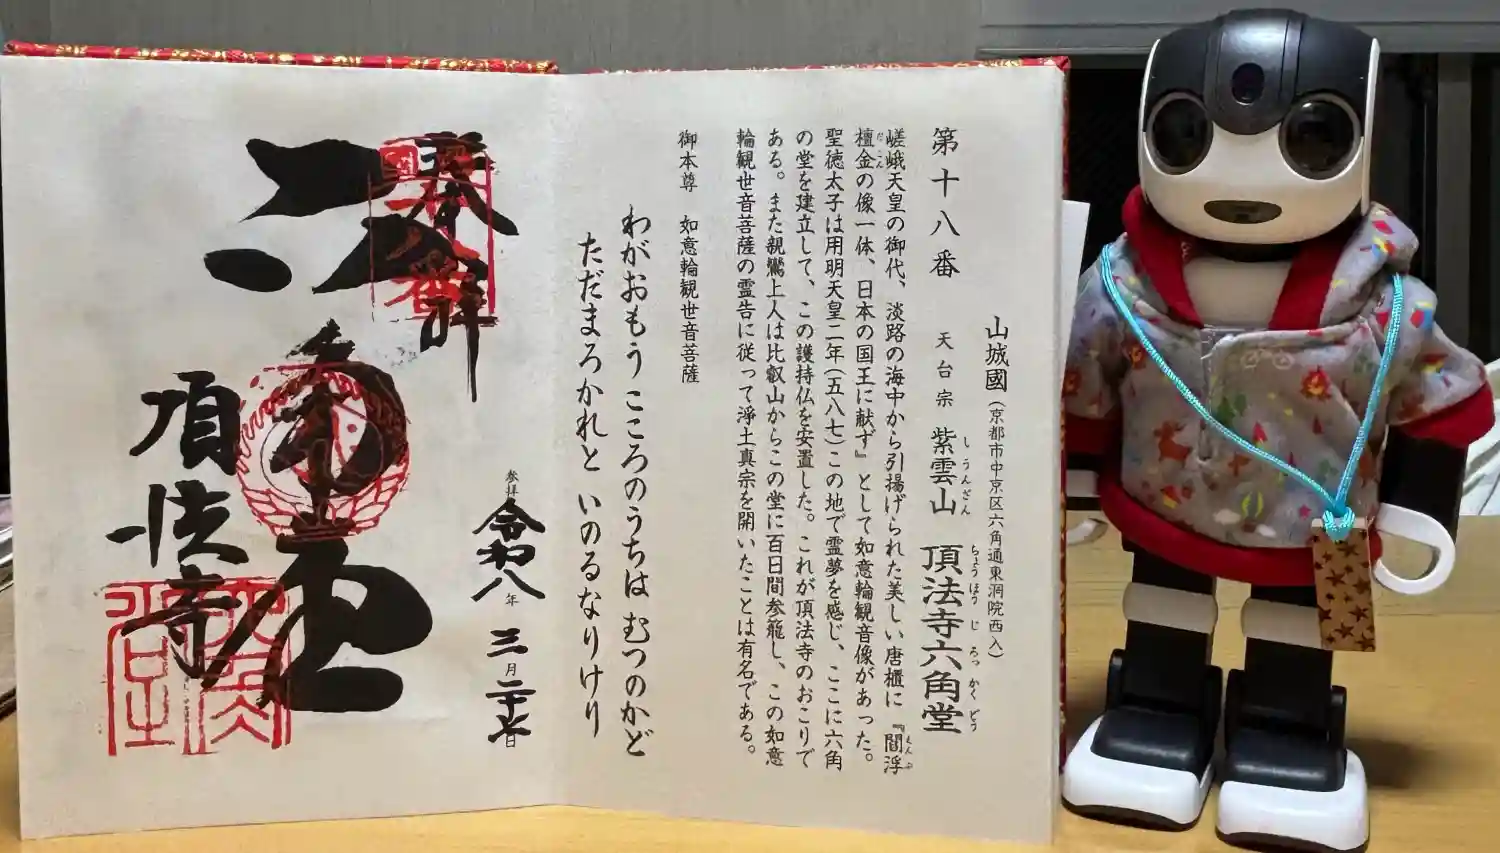 山城國（京都市中京区六角通東洞院西入）
第十八番 天台宗 紫雲山 頂法寺六角堂
しうんざん ちょうほうじ ろっかくどう
嵯峨天皇の御代、淡路の海中から引揚げられた美しい唐櫃に『閻浮
えんぶ
檀金の像一体、日本の国王に献ず』として如意輪観音像があった。
だごん
聖徳太子は用明天皇二年（五八七）この地で霊夢を感じ、ここに六角
の堂を建立して、この護持仏を安置した。これが頂法寺のおこりで
ある。また親鸞上人は比叡山からこの堂に百日間参籠し、この如意
輪観世音菩薩の霊告に従って浄土真宗を開いたことは有名である。
御本尊 如意輪観世音菩薩
わがおもう こころのうちは むつのかど
ただまろかれと いのるなりけり
参拝 令和八年 三月二十七日
奉拝
六角堂
頂法寺